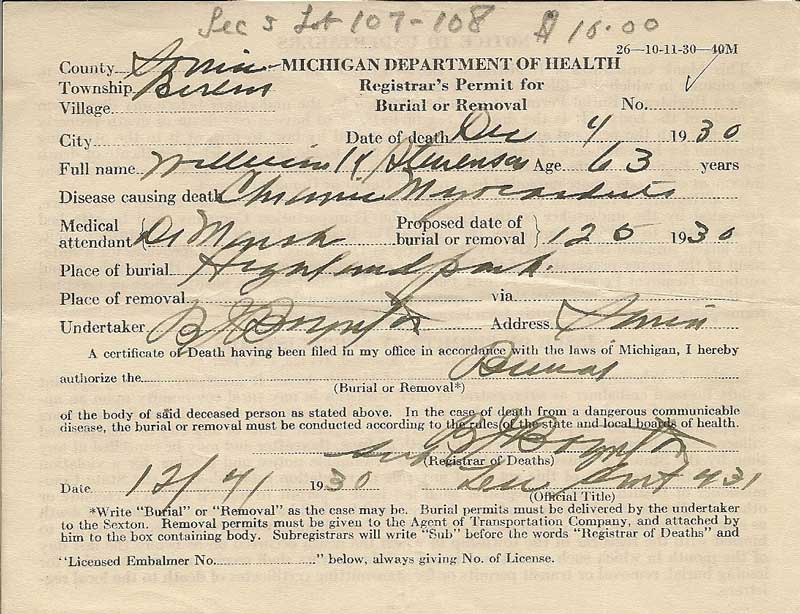 Sec 5 Lot 107-108 $ 10.00
26—10-11-30—40M
County Ionia MICHIGAN DEPARTMENT OF HEALTH
Township Berlin Registrar's Permit for
Village Burial or Removal No.
City Date of death Dec 4 1930
Full name William K Stevenson Age 63 years
Disease causing death Chronic Myocarditis
Medical attendant Dr Marsh Proposed date of burial or removal 12 5 1930
Place of burial Highland park.
Place of removal via
Undertaker B J Boynton Address Ionia
A certificate of Death having been filed in my office in accordance with the laws of Michigan, I hereby
authorize the Burial
(Burial or Removal*)
of the body of said deceased person as stated above. In the case of death from a dangerous communicable
disease, the burial or removal must be conducted according to the rules of the state and local boards of health.
Sub B J Boynton
(Registrar of Deaths)
Date 12/4/ 1930 431
(Official Title)
*Write "Burial" or "Removal" as the case may be. Burial permits must be delivered by the undertaker
to the Sexton. Removal permits must be given to the Agent of Transportation Company, and attached by
him to the box containing body. Subregistrars will write "Sub" before the words "Registrar of Deaths" and
"Licensed Embalmer No. " below, always giving No. of License.